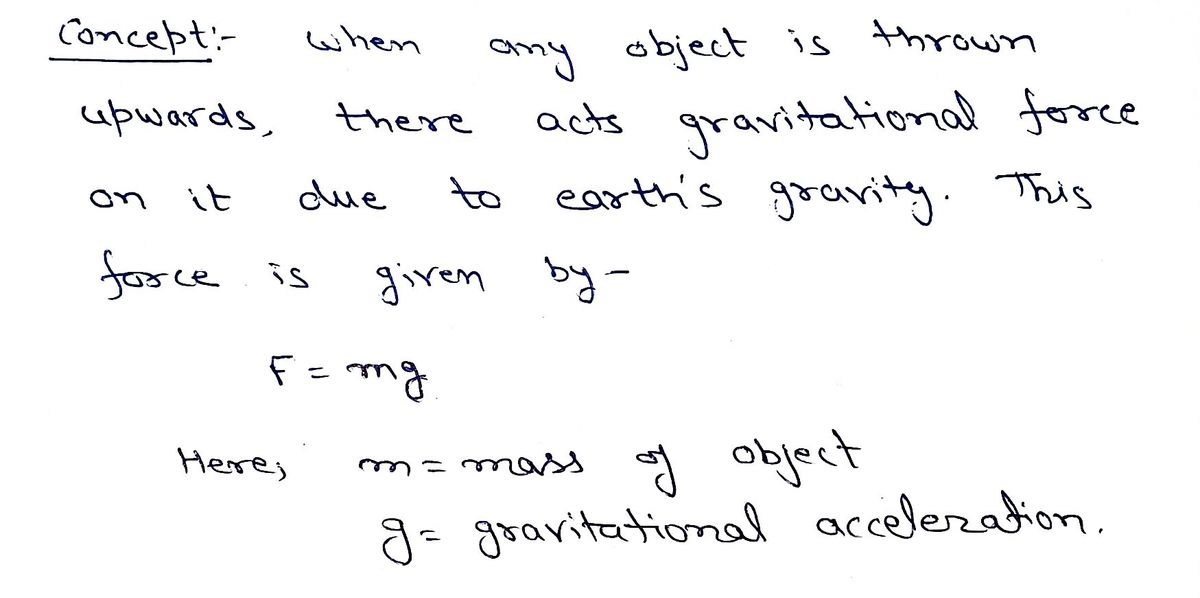 Concept:- when any object is thrown
upwards, there acts gravitational force
on it due to earth's gravity. This
force is given by-
F = mg
Here; m = mass of object
g = gravitational acceleration.